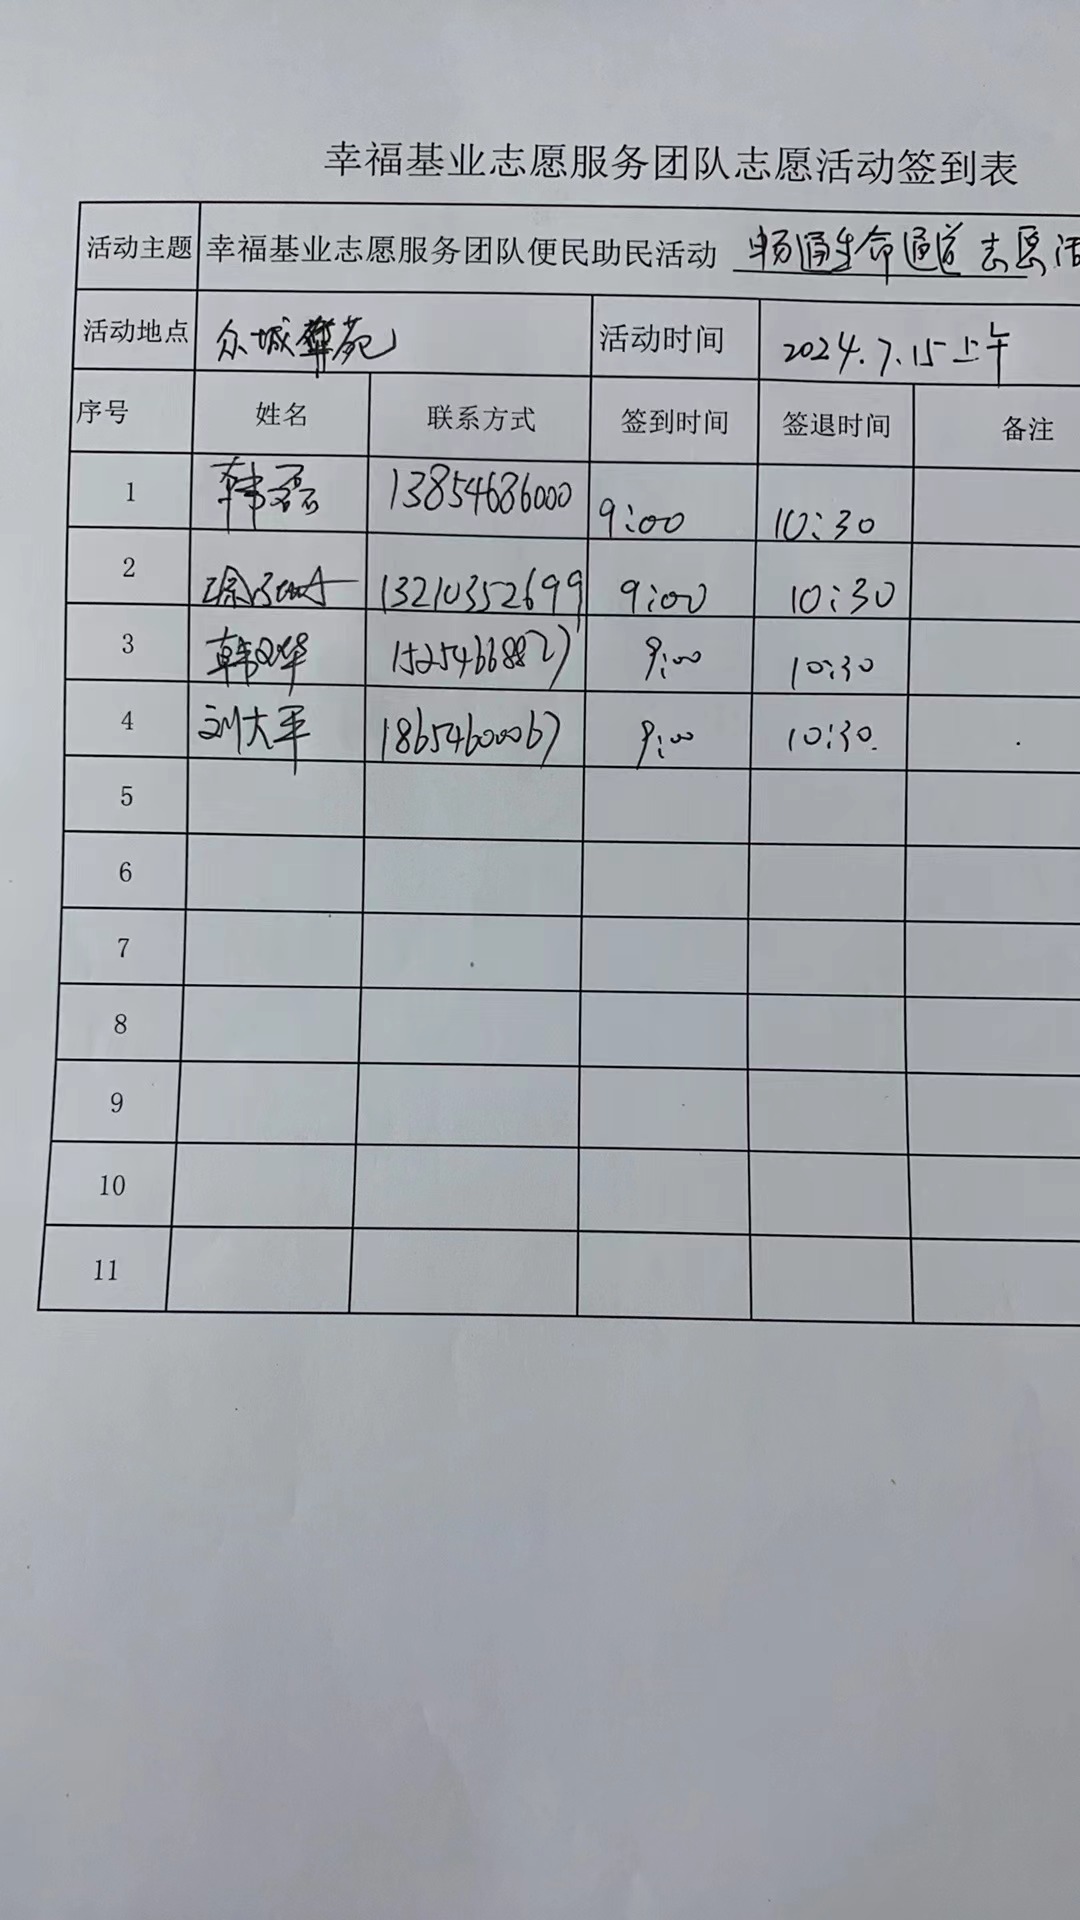 幸福基业志愿服务团队志愿活动签到表
活动主题 幸福基业志愿服务团队便民助民活动 畅通生命通道志愿活
活动地点 众城華苑 活动时间 2024.7.15上午
序号 姓名 联系方式 签到时间 签退时间 备注
1 韩磊 13854686000 9:00 10:30
2 13210352699 9:00 10:30
3 韩文华 15254668827 9:00 10:30
4 刘大平 18654600067 9:00 10:30
5
6
7
8
9
10
11